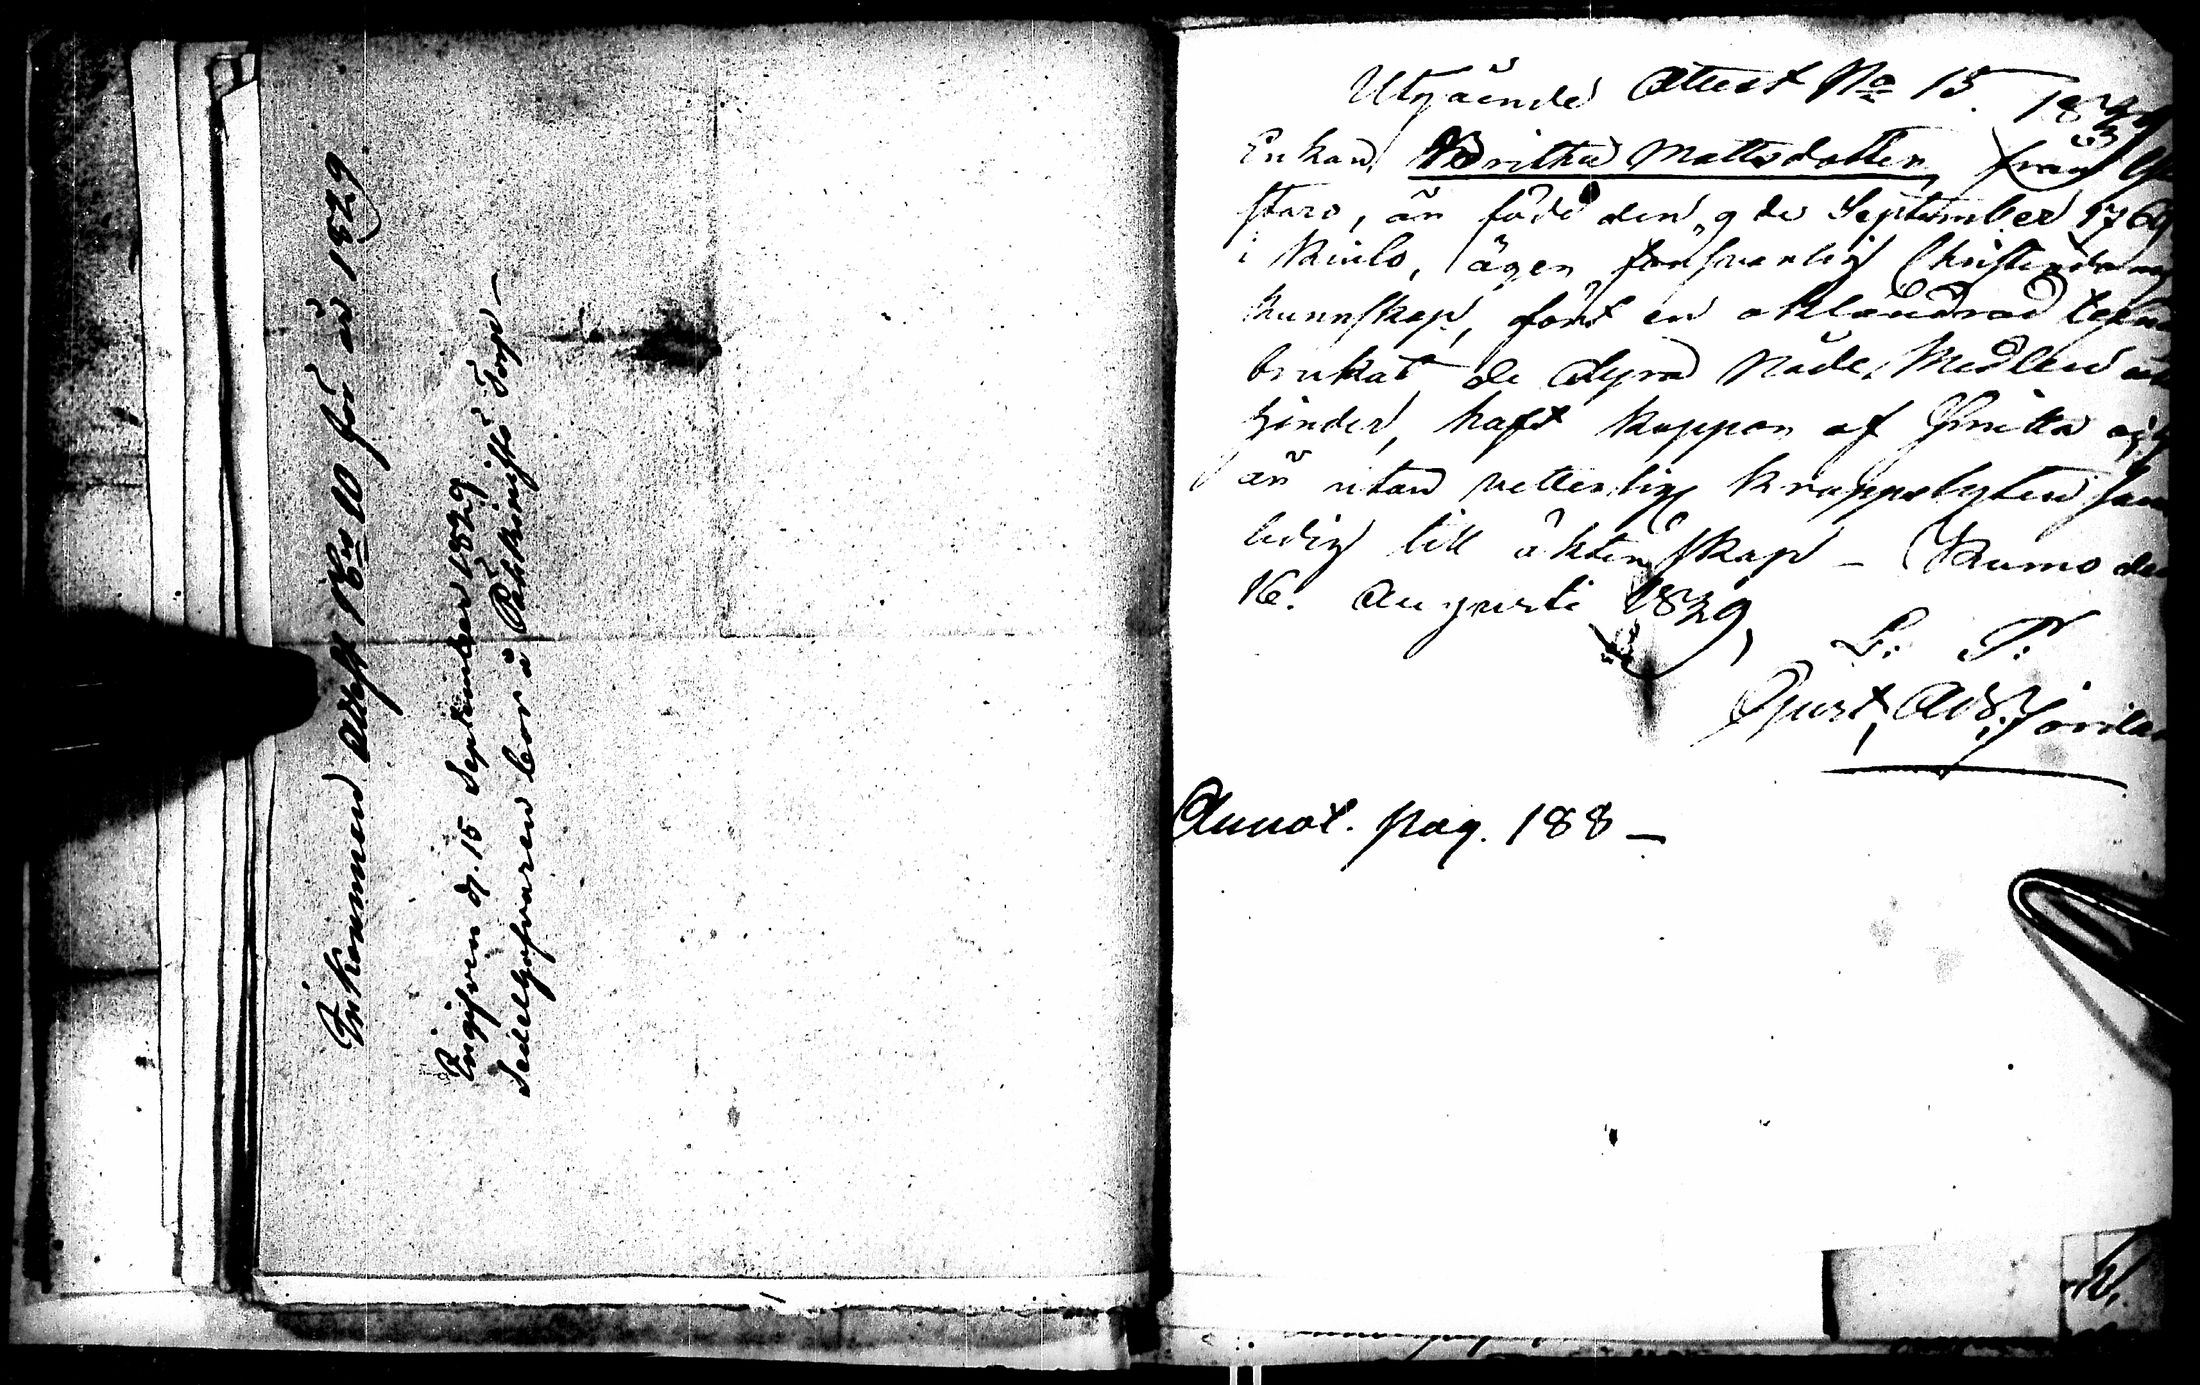 Inkommen Attest No 10 för år 1829
Ingifven d. 15 September 1829
Sedelgifvaren bor å Torp –
Utgående Attest No 15. 1829
Enkan Britha Mattsdotter från
staro, är född den 9de September 176
i Kiulo, äger försvarlig Christendoms
kunnskap, fört en oklandrad lefnad
brukat de dyra Nåde Medlen
hinder, haft koppor af Smitta
är utan vetterlig kroppslyten
ledig till äktenskap – Kumo den
16. Augusti 1829,
L. P.
Gust. Ad.
Annot. pag. 188 –